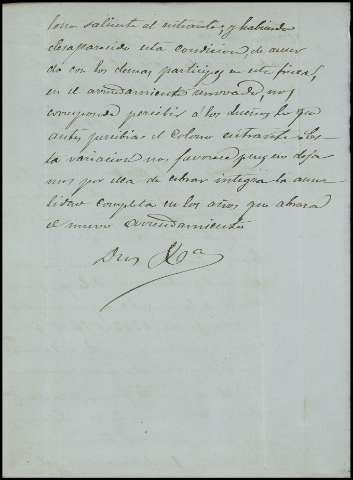 lono saliente al entrante; y habiendo
desaparecido esta condicion, de acuer
do con los demas participes en esta finca,
en el arrendamiento renovado, nos
corresponde percibir á los dueños lo que
antes percibia el Colono entrante. Es
ta variacion nos favorece pues no deja
mos por ella de cobrar integra la anua
lidad completa en los años que abraza
el nuevo arrendamiento